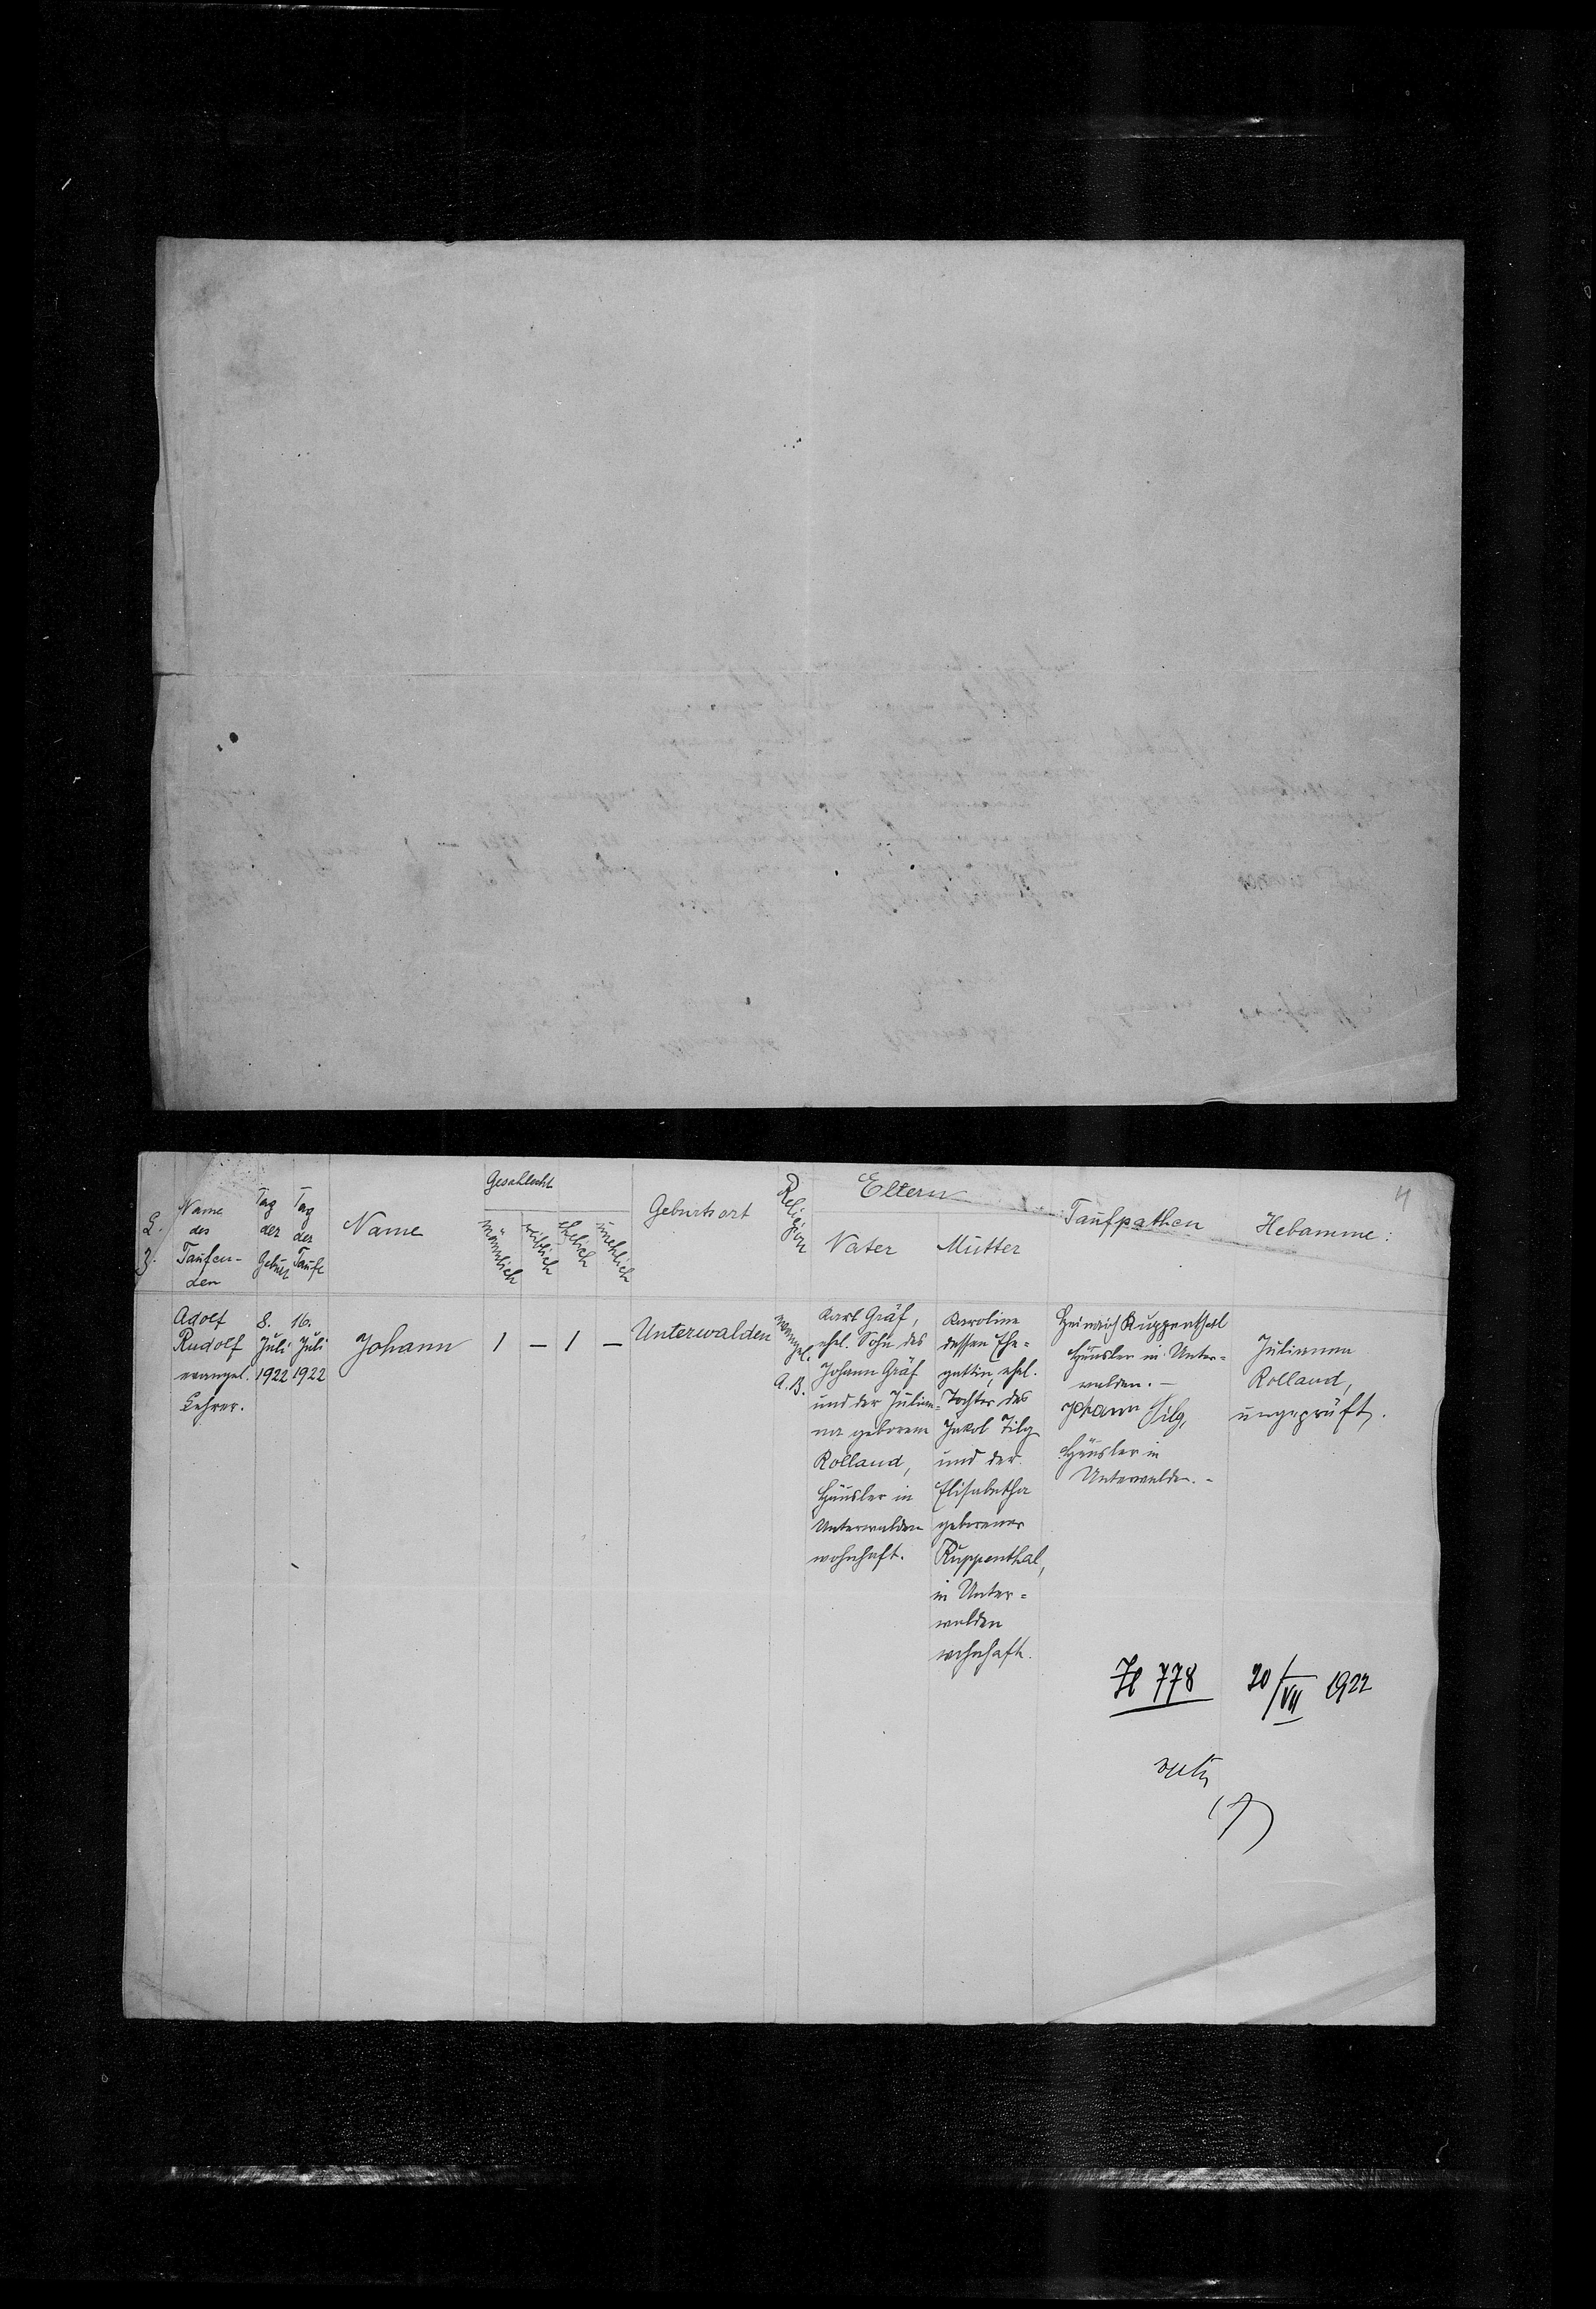 4
Geschlecht
Eltern
L. Z.
Name des Taufen-den
Tag der Geburt
Tag der Taufe
Name
männlich
weiblich
ehelich
unehlich
Geburtsort
Religion
Vater
Mutter
Taufpathen
Hebamme:
Adolf
Rudolf
evangel.
Lehrer.
8.
Juli
1922
16.
Juli
1922
Johann
1
–
1
–
Unterwalden
evangel.
A.B.
Karl Gräf,
ehel. Sohn des
Johann Gräf
und der Julian=
na geborene
Rolland,
Häusler in
Unterwalden
wohnhaft.
Karoline
dessen Ehe=
gattin, ehel.
Tochter des
Jakob Filg
und der
Elisabetha
geborener
Ruppenthal,
in Unter=
walden
wohnhaft.
Heinrich Ruppenthal
Häusler in Unter=
walden.–
Johann Filg,
Häusler in
Unterwalden.–
Julianna
Rolland,
ungeprüft.
Zl 778 20/VII 1922